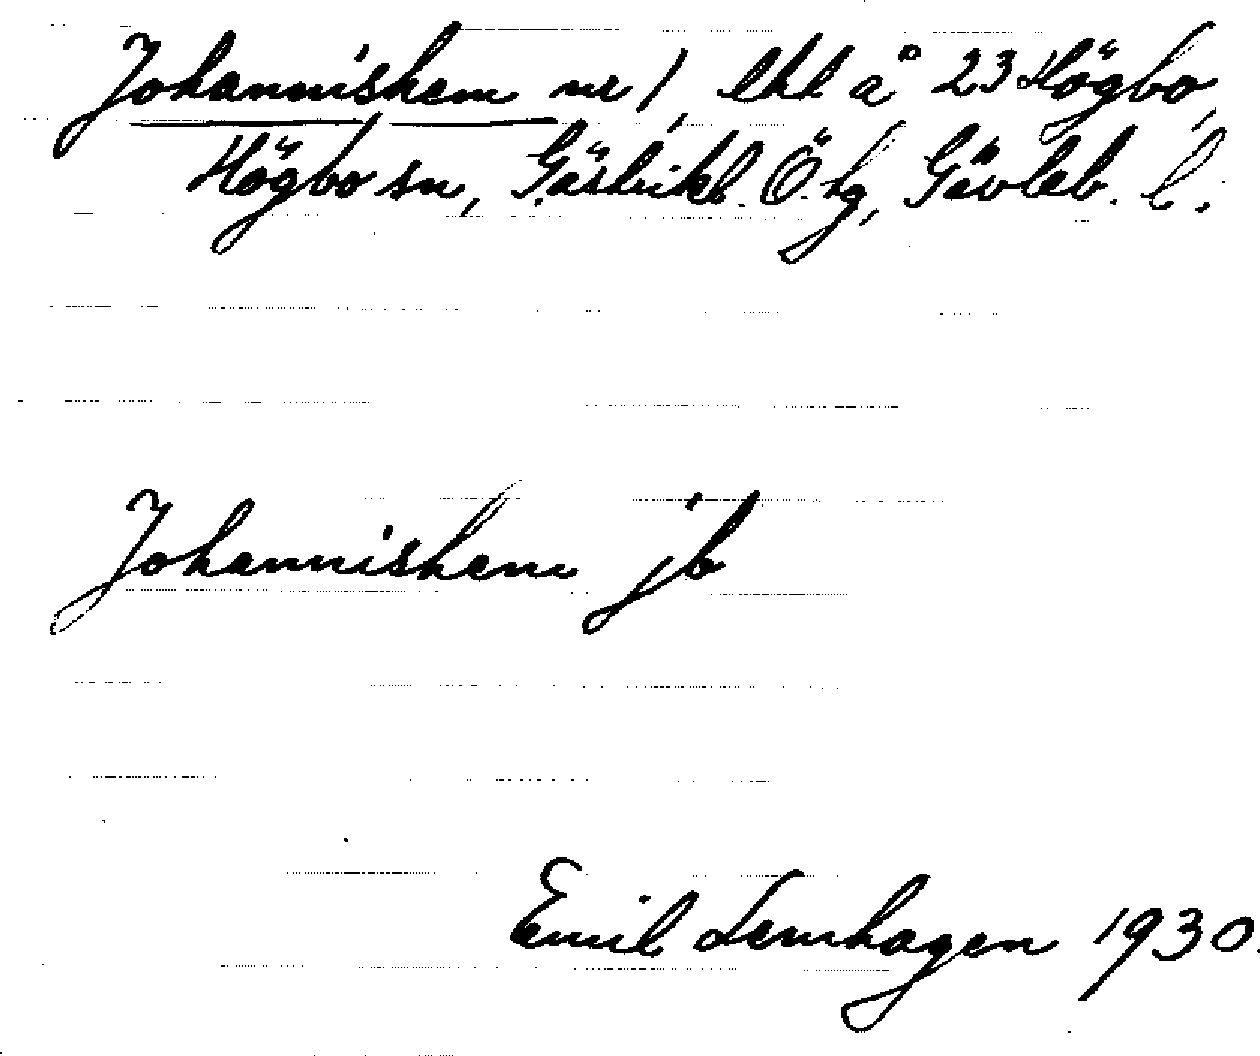 Johannishem nr 1, lht å 23 Högbo,
Högbo sn, Gästrikl. Ö. hg, Gävleb. l.
Johannishem jb
Emil Lemhagen 1930.